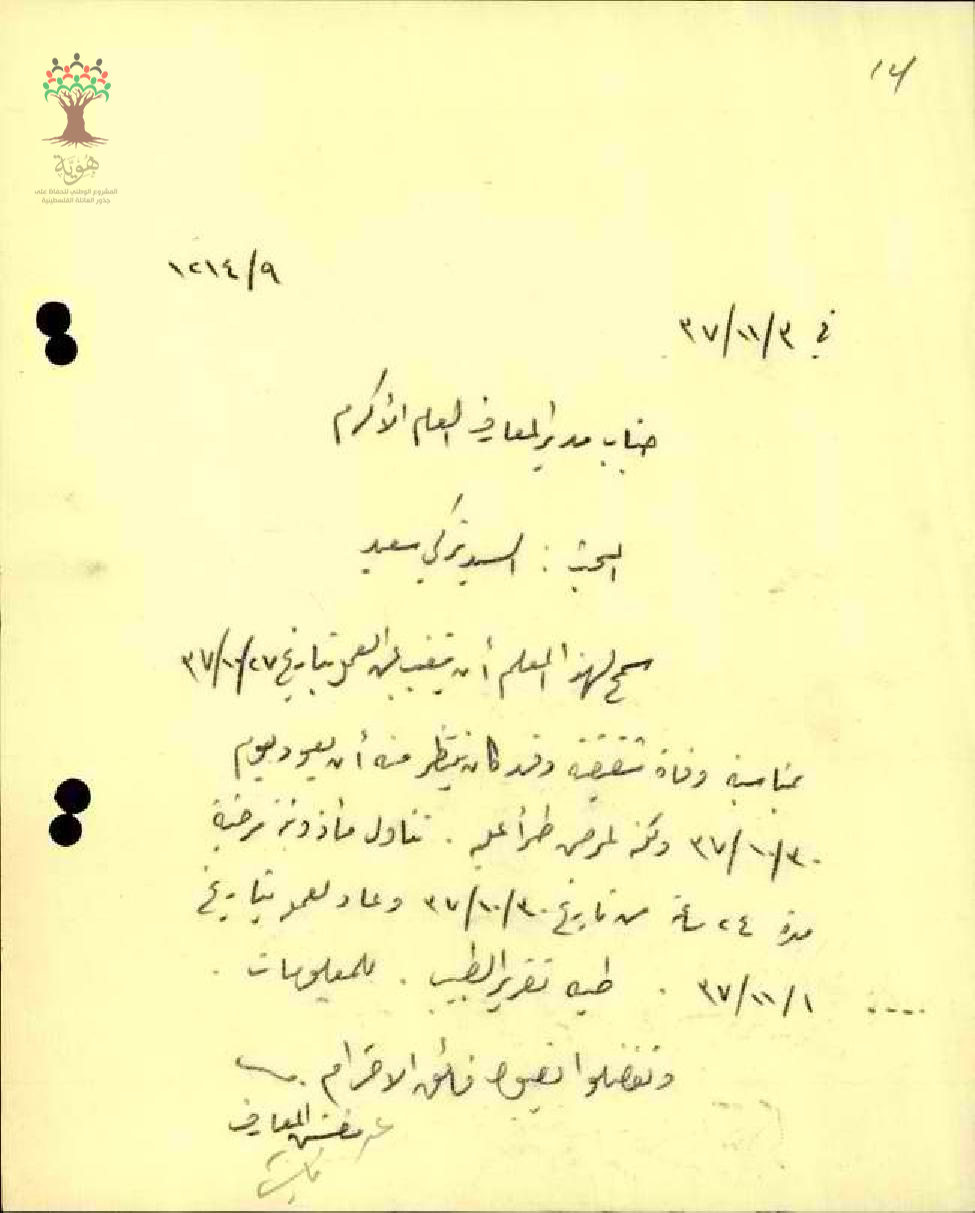 ١٤
هُوِيَّة
المشروع الوطني للحفاظ على
جذور العائلة الفلسطينية
١٢١٤/٩
في ٣٧/١١/٣
جناب مدير المعارف العام الأكرم
البحث : السيد تركي سعيد
سمح لهذا المعلم أن يتغيب عن العمل بتاريخ ٣٧/١٠/٢٧
بمناسبة وفاة شقيقته وقد كان ينتظر منه أن يعود يوم
٣٧/١٠/٣٠ ولكنه لمرض طرأ عليه . تناول مأذونية مرضية
مدة ٢٤ ساعة من تاريخ ٣٧/١٠/٣٠ وعاد للعمل بتاريخ
٣٧/١١/١ . طيه تقرير الطبيب . للمعلومات .
وتفضلوا بقبول فائق الاحترام
مفتش المعارف